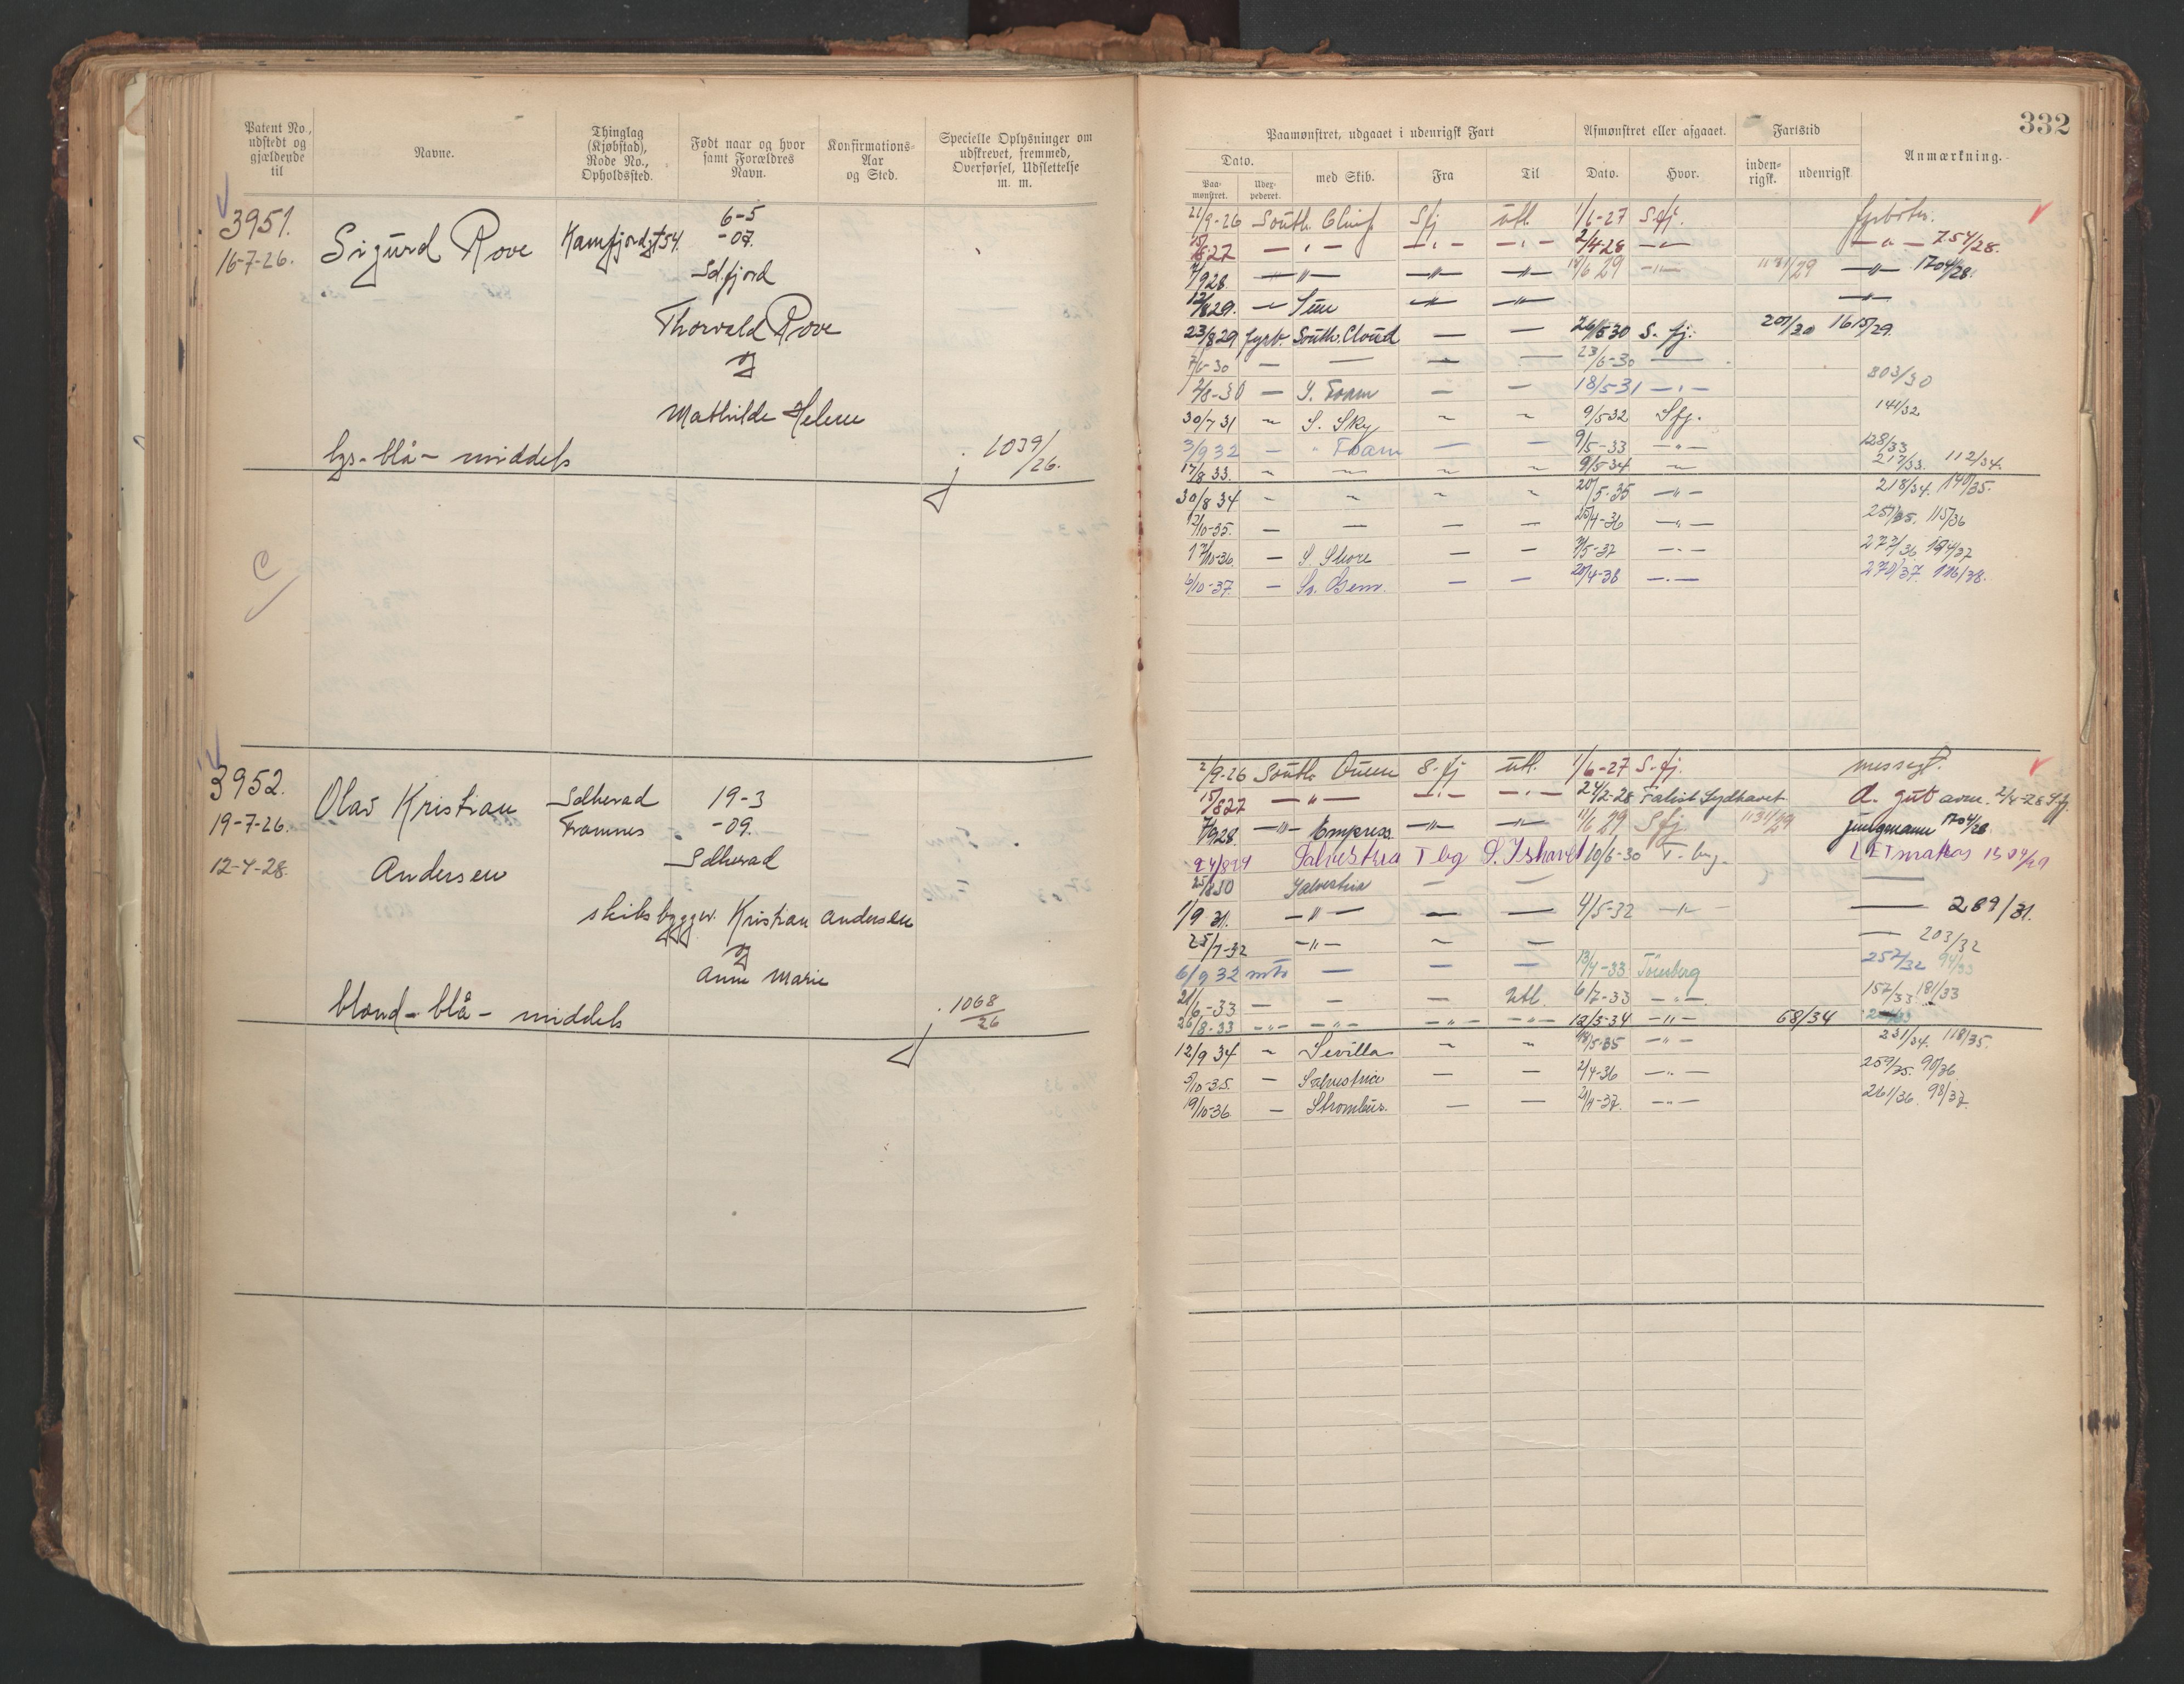 332
Patent No., udstedt og gjældende til
Navne.
Thinglag (Kjøbstad), Rode No., Opholdssted.
Født naar og hvor samt Forældres Navn.
Konfirmations-Aar og Sted.
Specielle Oplysninger om udskrevet, fremmed, Overførsel, Udslettelse m. m.
Paamønstret, udgaaet i udenrigsk Fart
Afmønstret eller afgaaet.
Fartstid
Anmærkning.
Dato.
Paa-mønstret.
Udex-pederet.
med Skib.
Fra
Til
Dato.
Hvor.
inden-rigsk.
udenrigsk
3951.
16-7-26.
Sigurd Rove
Kamfjordgt 54.
6-5
-07.
Sd.fjord
Thorvald Rove
og
Mathilde Helene
lys - blå - middels
1039/26.
21/9-26 South. Chief Sfj utl. 1/6-27 S.fj. fyrbøter.
15/8 27 — " — — " — — " — 2/4-28 — " — — " — 754/28.
7/9 28 — " — — " — — " — 10/6 29 — " — 1131/29 — " — 1704/28.
12/8 29. — — " — — " — — " —
23/8 29 fyrb. South. Cloud — — 26/5 30 S. fj. 201/30 1615/29.
7/6-30 — — — — 23/6-30 —
2/8-30 — S. Foam — — 18/5-31 — " — 803/30
30/7 31 ~ S. Sky ~ ~ 9/5-32 Sfj. 141/32
3/9 32 — " Foam — — 9/5-33 — " — 128/33
17/8 33. ~ ~ ~ ~ 9/5-34 ~ 217/33. 112/34.
30/8 34 ~ ~ ~ ~ 20/5-35 — " — 218/34. 140/35.
12/10-35. — — — — 25/4-36 — " — 251/35. 115/36
17/10-36. — S. Shore — — 7/5-37 — " — 273/36 124/37
6/10-37. — — — 20/4-38 — " — 270/37. 116/38.
3952.
19-7-26.
12-4-28.
Olav Kristian
Andersen
Sdherad
Framnes
19-3
-09.
Sdherad
skibsbygger. Kristian Andersen
og
Anne Marie
blond - blå - middels
1068/26
2/9-26 South. Queen S.fj utl. 1/6-27 S.fj. messegt.
15/8 27 — " — — " — — " — 24/2-28 Sydhavet d. gut 2/4-28 Sfj.
7/9 28. — " — Empress — " — — " — 11/6 29 Sfj 1131/29 jungmann 1704/28
24/8 29 Salvestria T bg S. Ishavet 10/6-30 T. bg. LETmatros 1504/29
25/8 30 Salvestria — — —
1/9 31. — " — — — 4/5-32 — " — — 289/31.
25/7-32 — " — ~ — — 203/32
6/9 32 mtr — — — 13/4-33 Tønsberg 252/32 94/33
21/6-33 — — — Utl. 6/7-33 — " — 157/33 181/33
26/8-33 — " — — " — — " — — " — 12/3-34 — " — 68/34
12/9 34 ~ Sevilla ~ ~ 18/5-35 — " — 231/34. 118/35.
5/10-35. — Salvestria — — 2/4-36 — " — 259/35. 90/36
19/10-36 — Strombus. — — 21/4-37. — " — 261/36. 98/37.